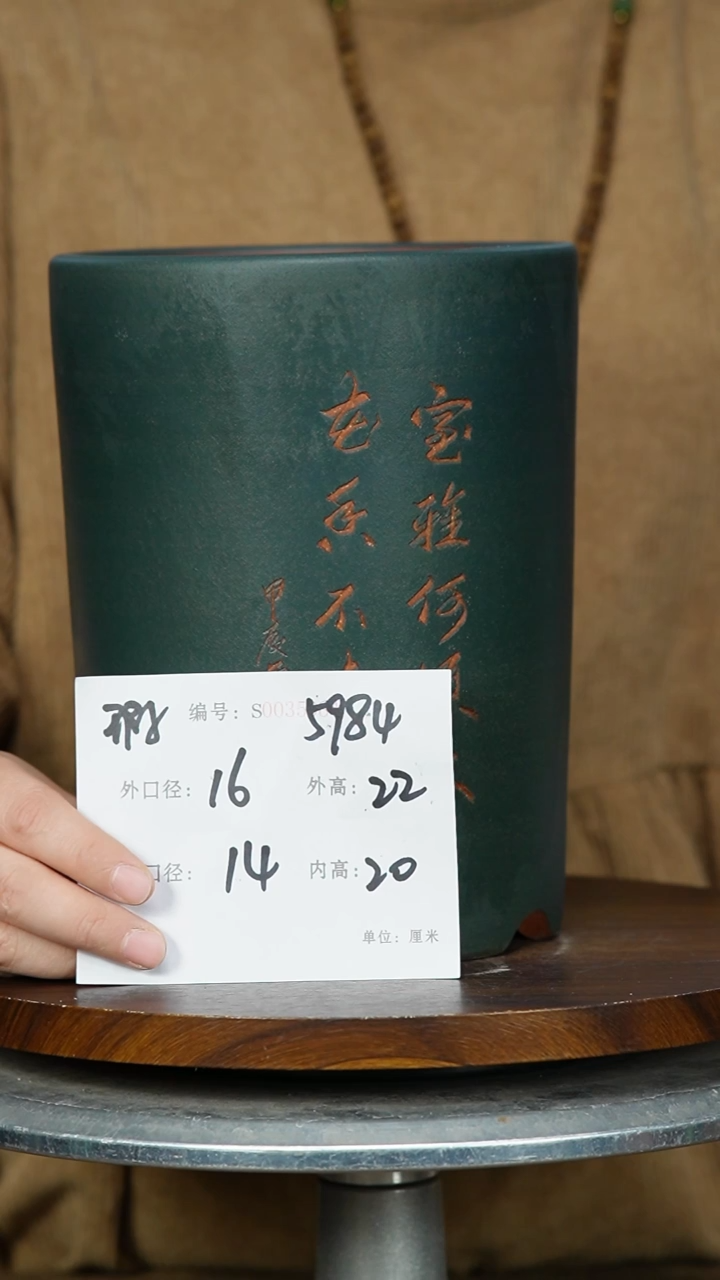 室雅何须大
花香不在
甲辰
编号: S0035 5984
外口径: 16 外高: 22
口径: 14 内高: 20
单位: 厘米